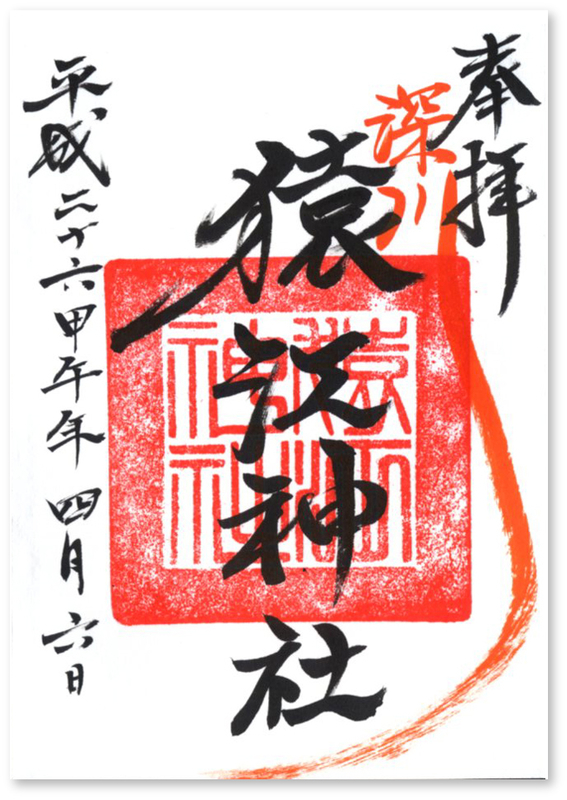 奉拝
深川
猿江神社
平成二十六甲午年 四月六日